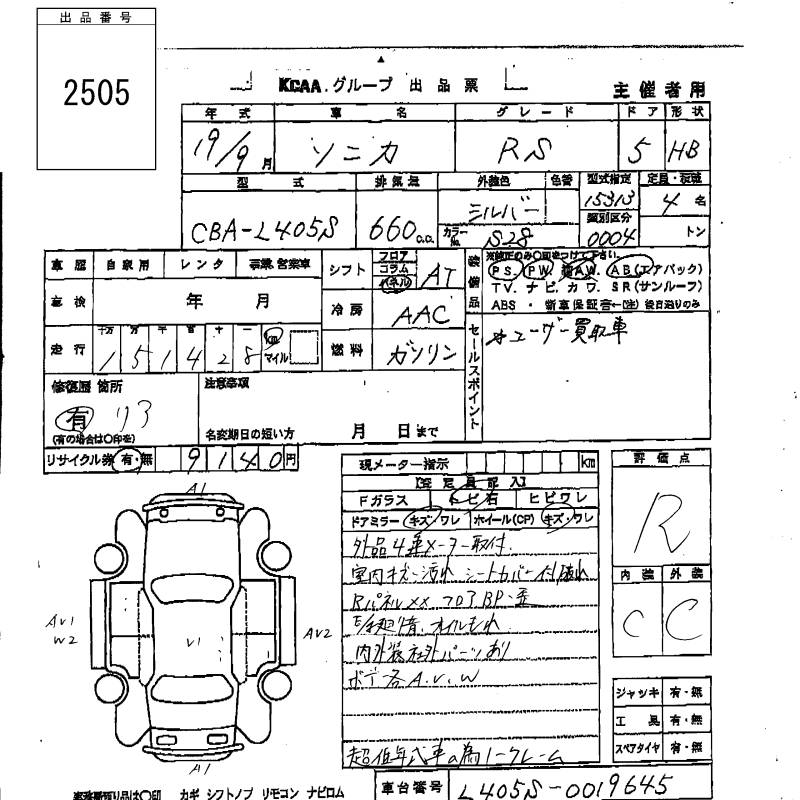 出品番号
2505
KCAA.グループ 出品票
主催者用
年式 車名 グレード ドア 形状
19/9月 ソニカ RS 5 HB
型式 排気量 外装色 色替 型式指定 定員・積載
CBA-L405S 660c.c. シルバー 15313 4名
カラーNo. S28 類別区分 0004 トン
車歴 自家用 レンタ 事業,営業車
シフト フロア コラム パネル AT
装備品 ※純正のみ○印をつけて下さい。
PS. PW. AW. AB(エアバック)
TV. ナビ. カワ. SR(サンルーフ)
ABS・新車保証書←(注)後日送りのみ
車検 年 月
冷房 AAC
走行 十万 万 千 百 十 一
151428 km マイル
燃料 ガソリン
セールスポイント
オユーザー買取車
修復歴 箇所
有 リア
(有の場合は○印を)
注意事項
名変期日の短い方 月 日まで
リサイクル券 有・無 9140円
現メーター指示 km
【査定員記入】
Fガラス トビ石 ヒビワレ
ドアミラー キズ・ワレ ホイール(CP) キズ・ワレ
外品4連メーター取付.
室内キズ・汚れ シートカバー付 破れ
RパネルXX フロアBP・歪
オイルもれ
内外装社外パーツあり
ボデー各A.U.W
超低年式車の為ノークレーム
評価点
R
内装 外装
C C
ジャッキ 有・無
工具 有・無
スペアタイヤ 有・無
A1
AV1
W2
V1
AV2
A1
車台番号 L405S-0019645
カギ シフトノブ リモコン ナビロム